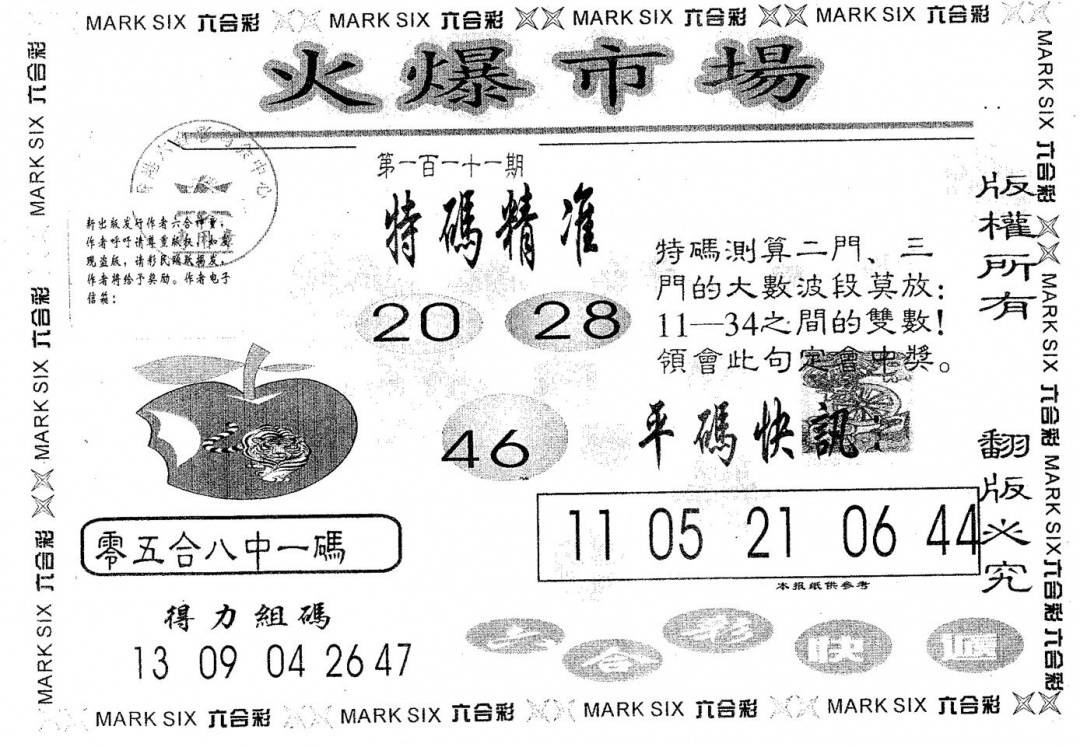 MARK SIX 六合彩 MARK SIX 六合彩 MARK SIX 六合彩 MARK SIX 六合彩
火爆市場
第一百一十一期
特碼精准
新出版发行作者六合神童，
作者呼吁请尊重版权，如发
现盗版，请彩民
作者将给予奖励。作者电子
信箱：
20 28
46
特碼測算二門、三
門的大數波段莫放：
11—34之間的雙數！
領會此句定會中獎。
平碼快訊：
11 05 21 06 44
本报紙供参考
零五合八中一碼
得力組碼
13 09 04 26 47
六合彩快
版權所有
翻版必究
MARK SIX 六合彩 MARK SIX 六合彩 MARK SIX 六合彩
MARK SIX 六合彩 MARK SIX 六合彩 MARK SIX 六合彩 六合彩
MARK SIX 六合彩 MARK SIX 六合彩 MARK SIX 六合彩 MARK SIX 六合彩